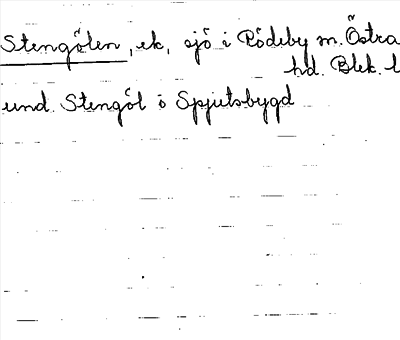 Stengölen, ek, sjö i Rödeby sn. Östra
hd. Blek. l
und. Stengöl ö Spjutsbygd